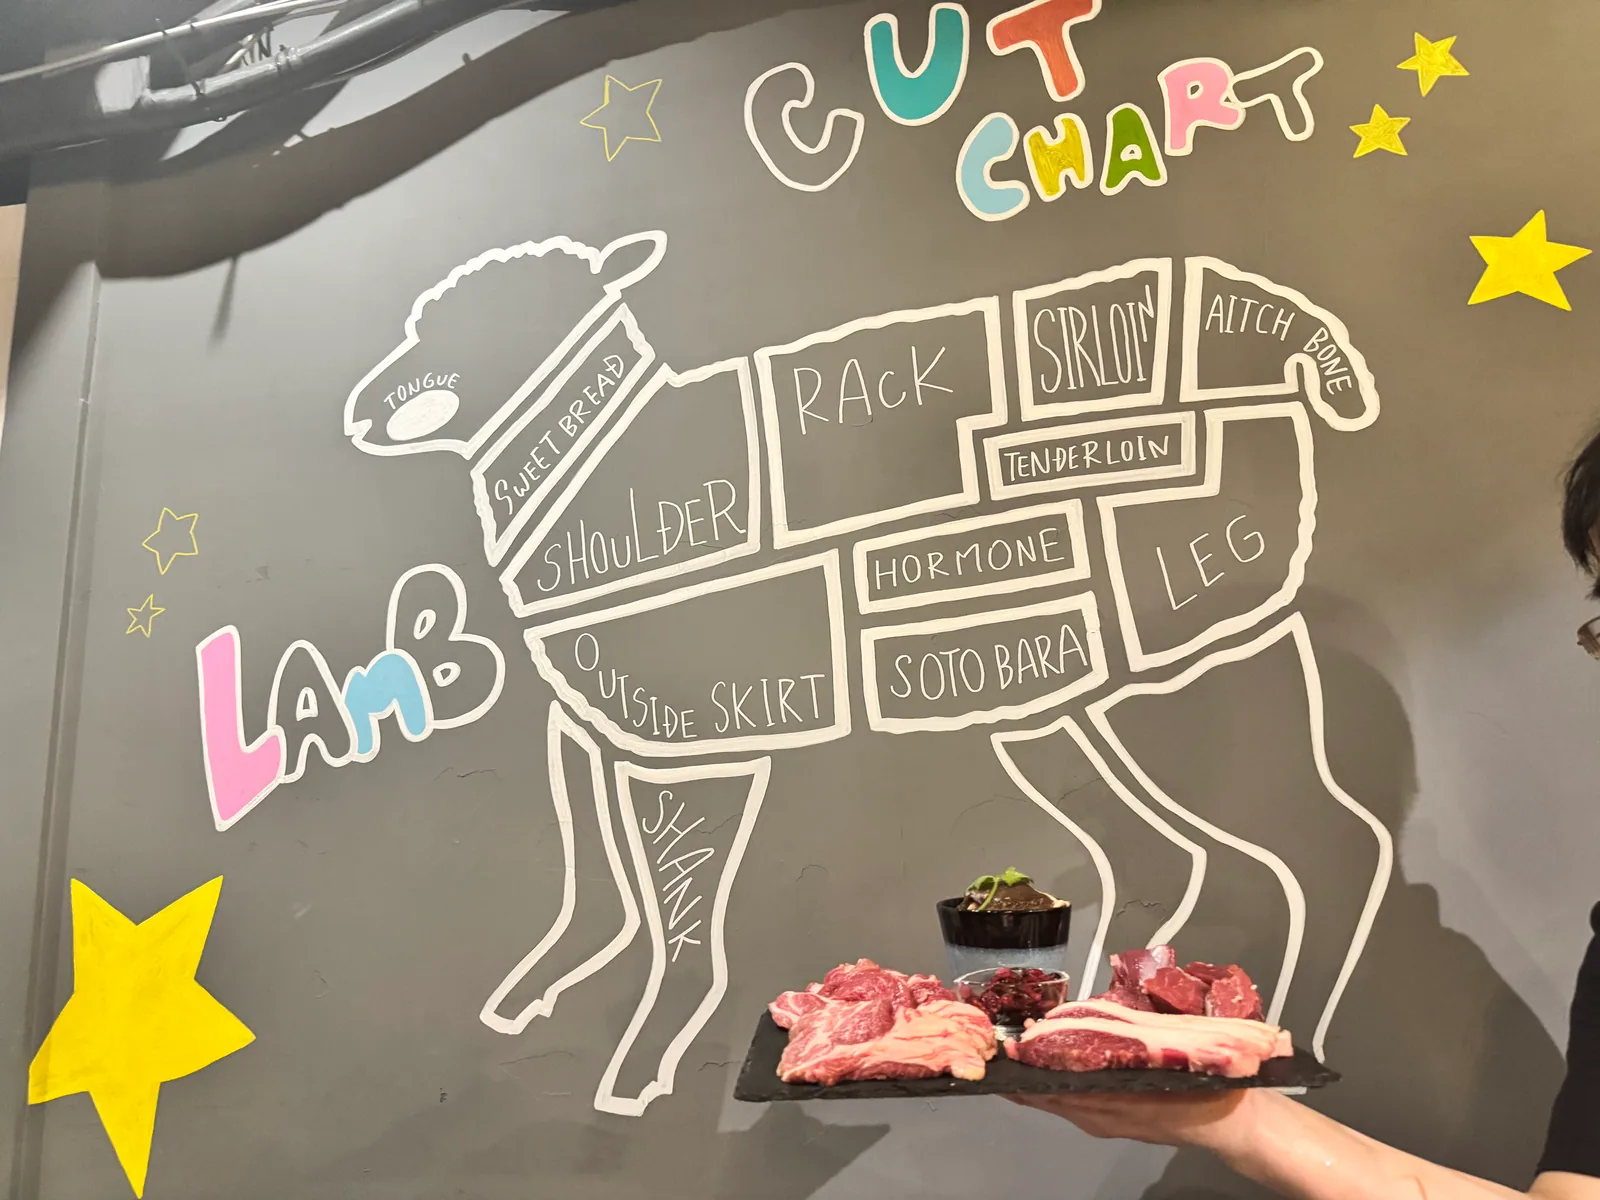 CUT
CHART
TONGUE
SWEET BREAD
SHOULDER
RACK
SIRLOIN
AITCH BONE
TENDERLOIN
HORMONE
LEG
OUTSIDE SKIRT
SOTO BARA
LAMB
SHANK